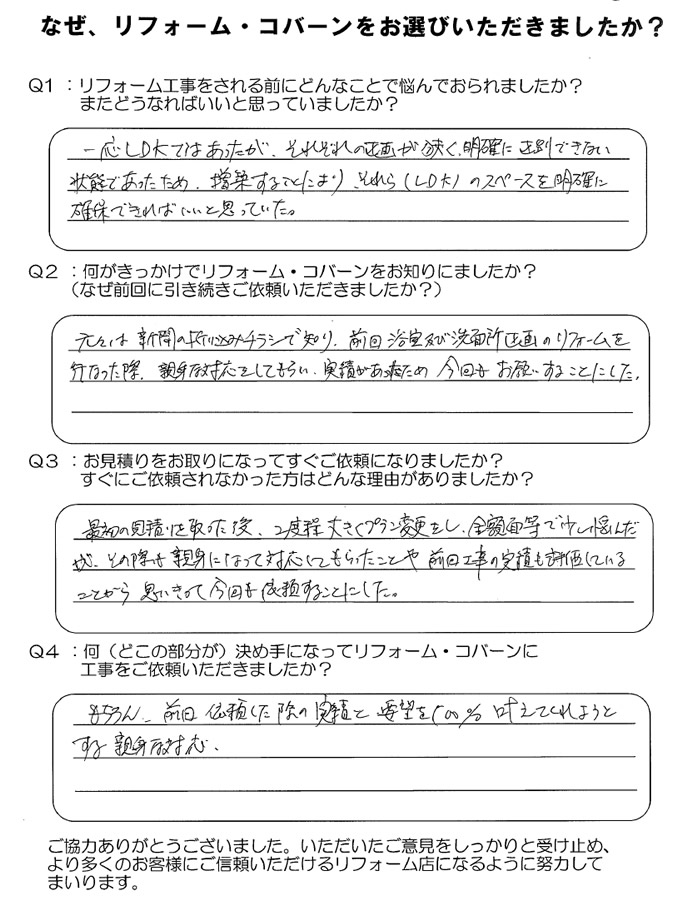 なぜ、リフォーム・コバーンをお選びいただきましたか？
Q1：リフォーム工事をされる前にどんなことで悩んでおられましたか？
またどうなればいいと思っていましたか？
一応LDKではあったが、それぞれの区画が狭く、明確に区別できない
状態であったため、増築することにより、それら（LDK）のスペースを明確に
確保できればいいと思っていた。
Q2：何がきっかけでリフォーム・コバーンをお知りにましたか？
（なぜ前回に引き続きご依頼いただきましたか？）
元々は新聞の折り込みチラシで知り、前回浴室及び洗面所区画のリフォームを
行なった際、親身な対応をしてもらい、実績があったため今回もお願いすることにした。
Q3：お見積りをお取りになってすぐご依頼になりましたか？
すぐにご依頼されなかった方はどんな理由がありましたか？
最初の見積りを取った後、2度程大きくプラン変更をし、金額面等で少し悩んだ
が、その際も親身になって対応してもらったことや前回工事の実績も評価している
ことから思いきって今回も依頼することにした。
Q4：何（どこの部分が）決め手になってリフォーム・コバーンに
工事をご依頼いただきましたか？
もちろん、前回依頼した際の実績と要望を100％叶えてくれようと
する親身な対応、
ご協力ありがとうございました。いただいたご意見をしっかりと受け止め、
より多くのお客様にご信頼いただけるリフォーム店になるように努力して
まいります。